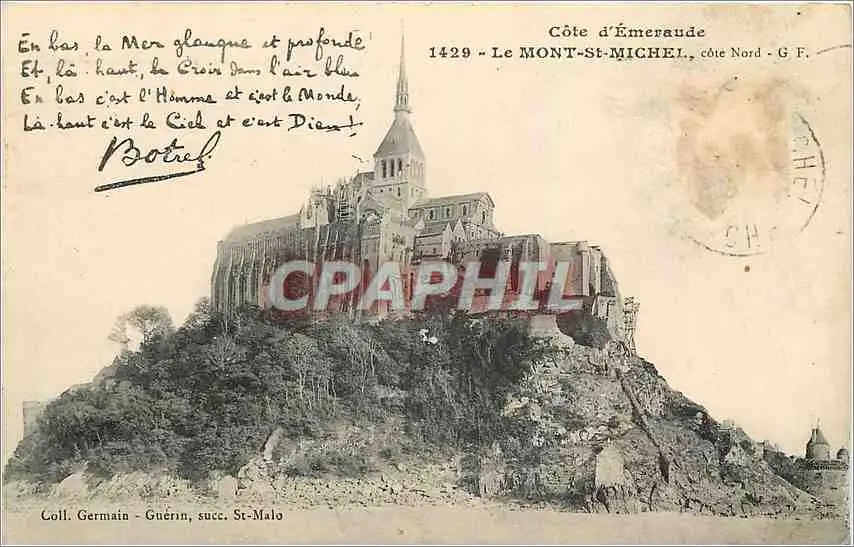 En bas, la Mer glauque et profonde
Et, là-haut, la Croix dans l'air bleu
En bas c'est l'Homme et c'est le Monde,
Là-haut c'est le Ciel et c'est Dieu !
Botrel
Côte d'Émeraude
1429 - Le MONT-St-MICHEL, côte Nord - G F.
CH
CPAPHIL
Coll. Germain - Guérin, succ. St-Malo